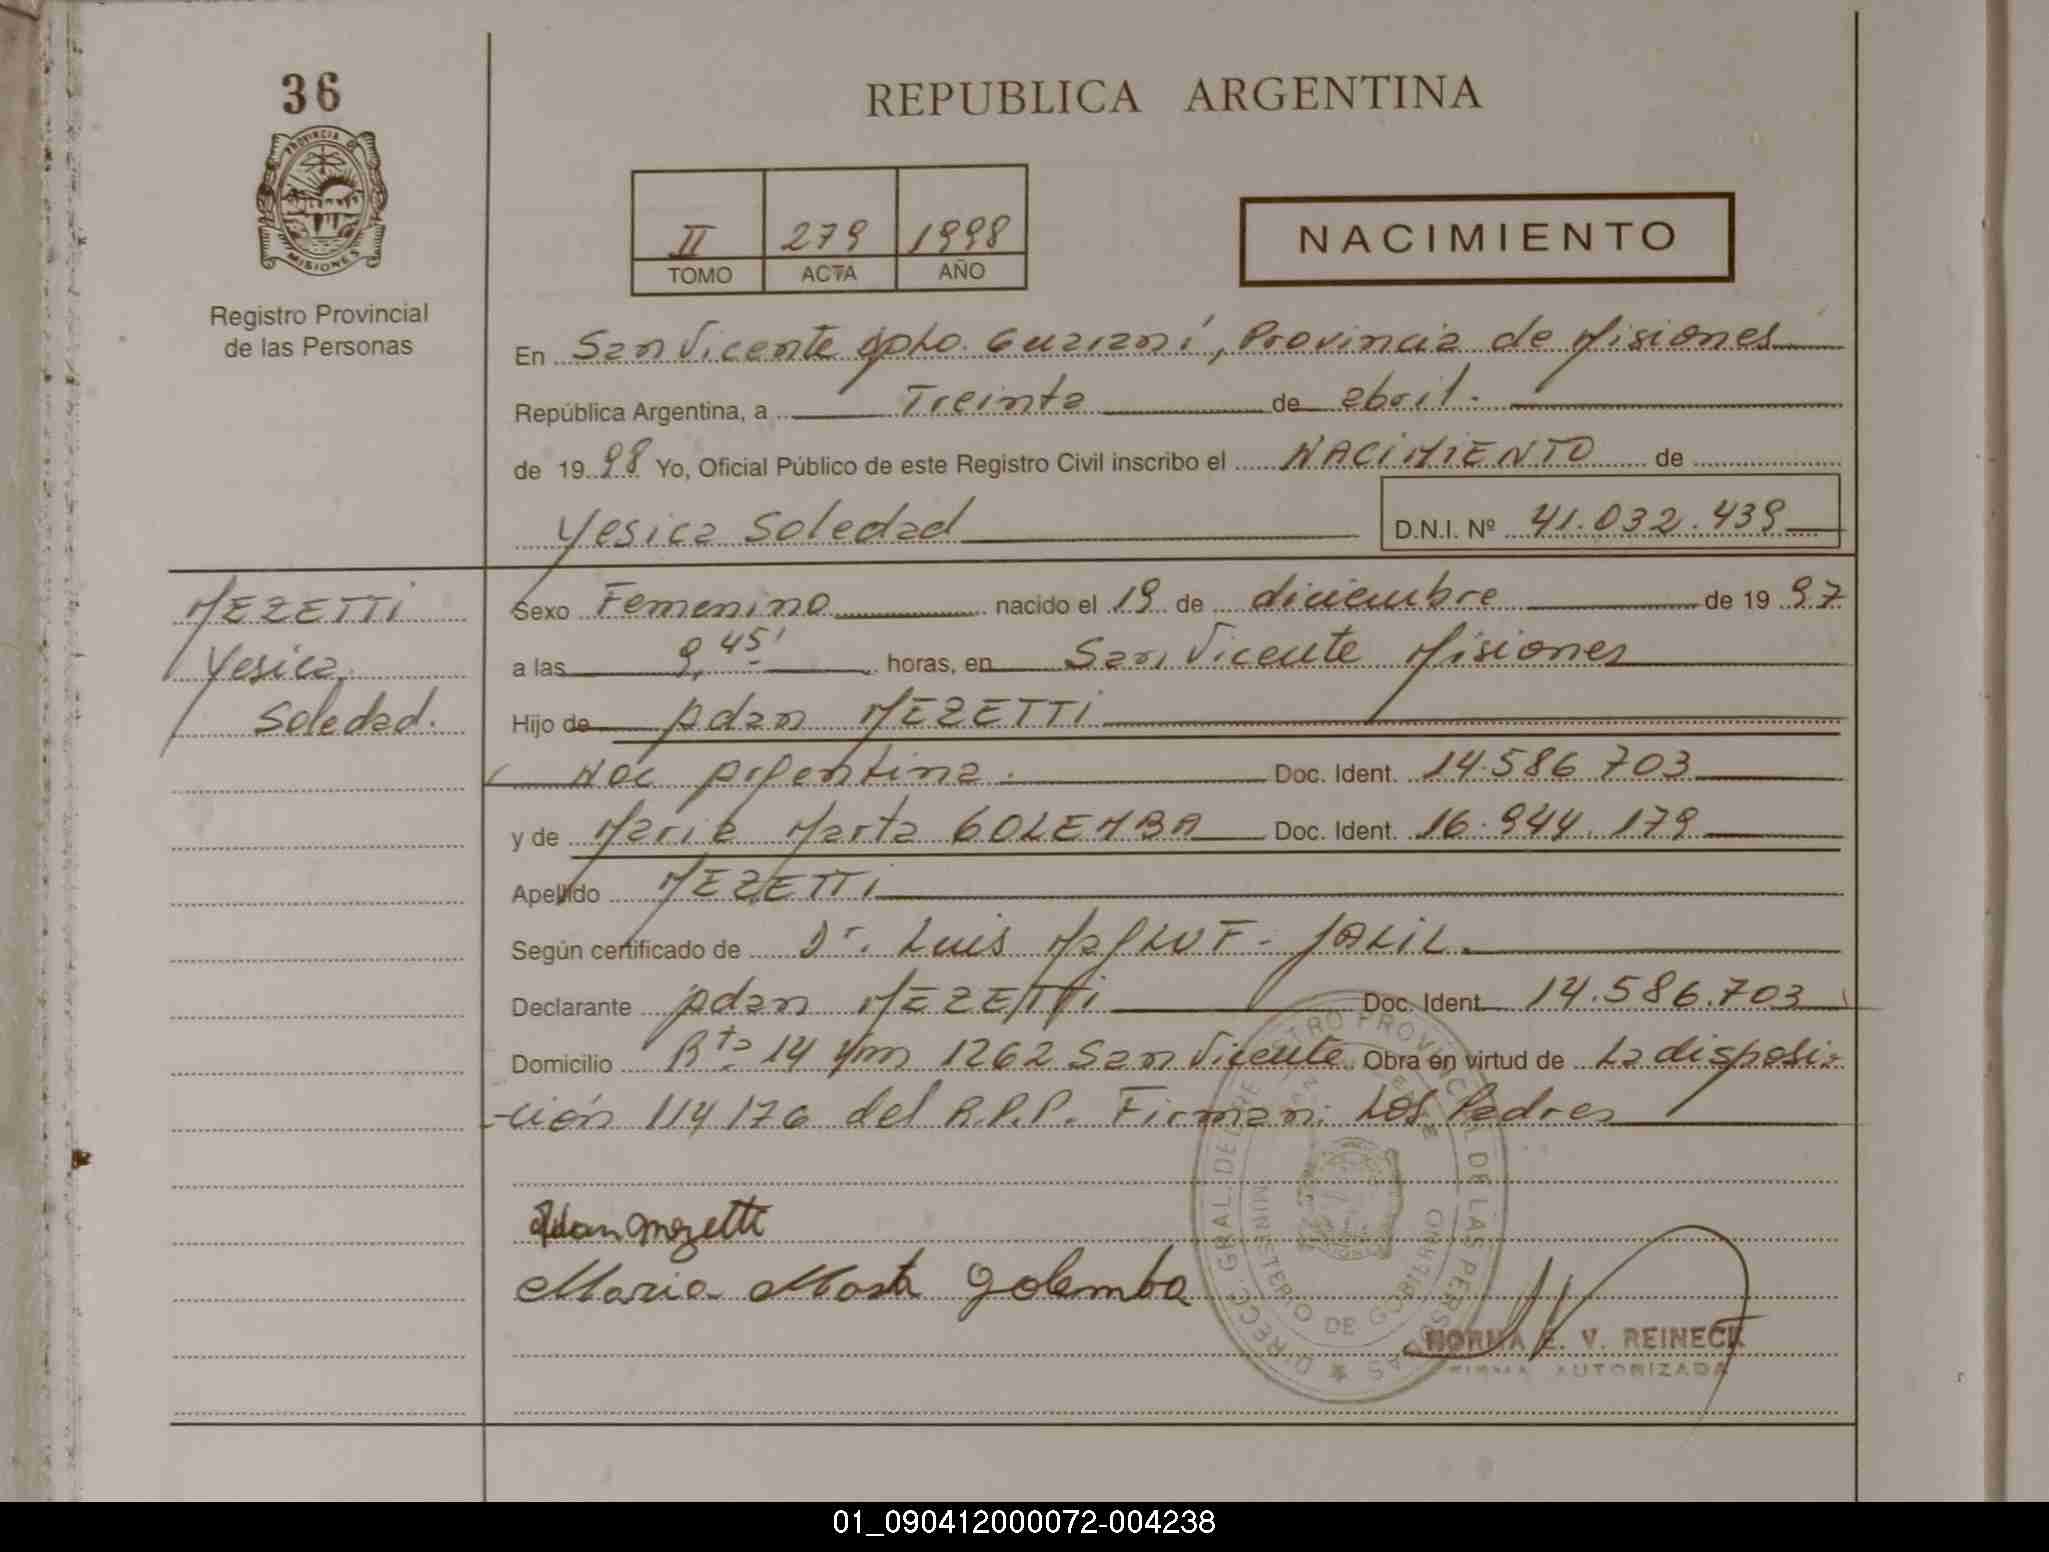 36
PROVINCIA DE
MISIONES
Registro Provincial
de las Personas
REPUBLICA ARGENTINA
II 279 1998
TOMO ACTA AÑO
NACIMIENTO
En San Vicente Dpto. Guaraní, Provincia de Misiones
República Argentina, a Treinta de abril.
de 1998 Yo, Oficial Público de este Registro Civil inscribo el NACIMIENTO de
Yesica Soledad D.N.I. Nº 41.032.439
MEZETTI
Yesica
Soledad.
Sexo Femenino nacido el 19 de diciembre de 1997
a las 9,45' horas, en San Vicente Misiones
Hijo de Adan MEZETTI
Nac Argentina. Doc. Ident. 14.586.703
y de Maria Marta GOLEMBA Doc. Ident. 16.944.179
Apellido MEZETTI
Según certificado de Dr. Luis MaGLUF-JALIL.
Declarante Adan MEZETTI Doc. Ident. 14.586.703
Domicilio Rta 14 Km 1262 San Vicente. Obra en virtud de La disposi-
-ción 114/76 del R.P.P. Firman: Los Padres
Adan Mezetti
Maria Marta Golemba
DIRECC. GRAL. DEL REGISTRO PROVINCIAL DE LAS PERSONAS
MINISTERIO DE GOBIERNO
NORMA E. V. REINECK
FIRMA AUTORIZADA
01_090412000072-004238